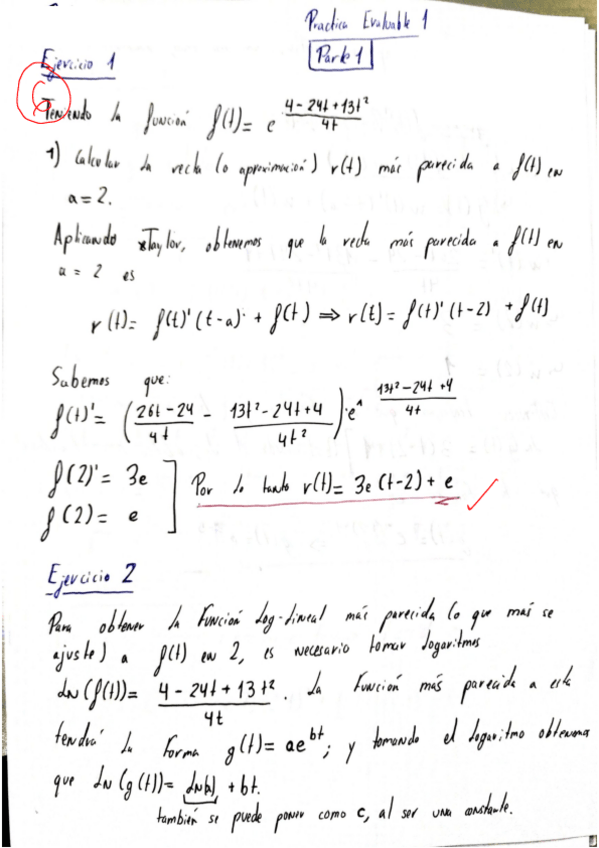 Practica Evaluable 1
Parte 1
Ejercicio 1
Teniendo la función f(t) = e^((4-24t+13t²)/(4t))
1) Calcular la recta (o aproximación) r(t) más parecida a f(t) en
a = 2.
Aplicando Taylor, obtenemos que la recta más parecida a f(t) en
a = 2 es
r(t) = f(t)'(t-a) + f(t) ⇒ r(t) = f(t)'(t-2) + f(t)
Sabemos que:
f(t)' = ((26t-24)/(4t) - (13t²-24t+4)/(4t²))·e^((13t²-24t+4)/(4t))
f(2)' = 3e
f(2) = e
Por lo tanto r(t) = 3e(t-2) + e
Ejercicio 2
Para obtener la Función Log-Lineal más parecida (o que más se
ajuste) a f(t) en 2, es necesario tomar logaritmos
Ln(f(t)) = (4-24t+13t²)/(4t). La Función más parecida a esta
tendrá la forma g(t) = ae^(bt); y tomando el logaritmo obtenemos
que Ln(g(t)) = Ln(a) + bt.
también se puede poner como c, al ser una constante.